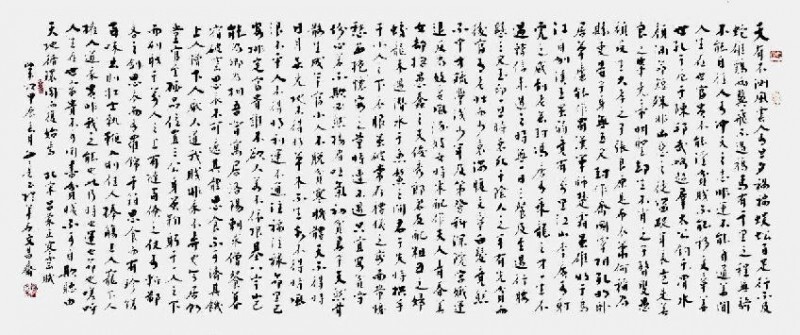 天有不测风云人有旦夕祸福蜈蚣百足行不及
蛇雄鸡两翼飞不过鸦马有千里之程无骑
不能自往人有冲天之志非运不能自通盖闻
人生在世富贵不能淫贫贱不能移文章盖
世孔子厄于陈邦武略超群太公钓于渭水
颜渊命短殊非凶恶之徒盗跖年长岂是善
良之辈尧帝明圣却生不肖之子瞽叟愚
顽反生大孝之子张良原是布衣萧何称谓
县吏晏子身无五尺封作齐国宰相孔明卧
居草庐能作蜀汉军师楚霸虽雄败于乌
江自刎汉王虽弱竟有万里江山李广有射
虎之威到老无封冯唐有乘龙之才一生不
遇韩信未遇之时无一日三餐及至遇行腰
悬三尺玉印一旦时衰死于阴人之手有先贫而
后富有老壮而少衰满腹文章白发竟然
不中才疏学浅少年及第登科深院宫娥运
退反为妓妾风流妓女时来配作夫人青春美
女却招愚蠢之夫俊秀郎君反配粗丑之妇
蛟龙未遇潜水于鱼鳖之间君子失时拱手
于小人之下衣服虽破常存仪礼之容面带忧
愁每抱怀安之量时遭不遇只宜安贫守
份心若不欺必然扬眉吐气初贫君子天然骨
骼生成乍富小人不脱贫寒肌体天不得时
日月无光地不得时草木不生水不得时风
浪不平人不得时利运不通注福注禄命里已
安排定富贵谁不欲人若不依根基八字岂
能为卿为相吾昔寓居洛阳朝求僧餐暮
宿破窑思衣不可遮其体思食不可济其饥
上人憎下人厌人道我贱非我不弃也今居朝
堂官至极品位置三公身虽鞠躬于一人之下
而列职于千万人之上有挞百僚之杖有斩鄙
吝之剑思衣而有罗锦千箱思食而有珍馐
百味出则壮士执鞭入则佳人捧觞上人宠下人
拥人道我贵非我之能也此乃时也运也命也嗟呼
人生在世富贵不可尽用贫贱不可自欺听由
天地循环周而复始焉 北宋吕蒙正寒窑赋
文昌斋